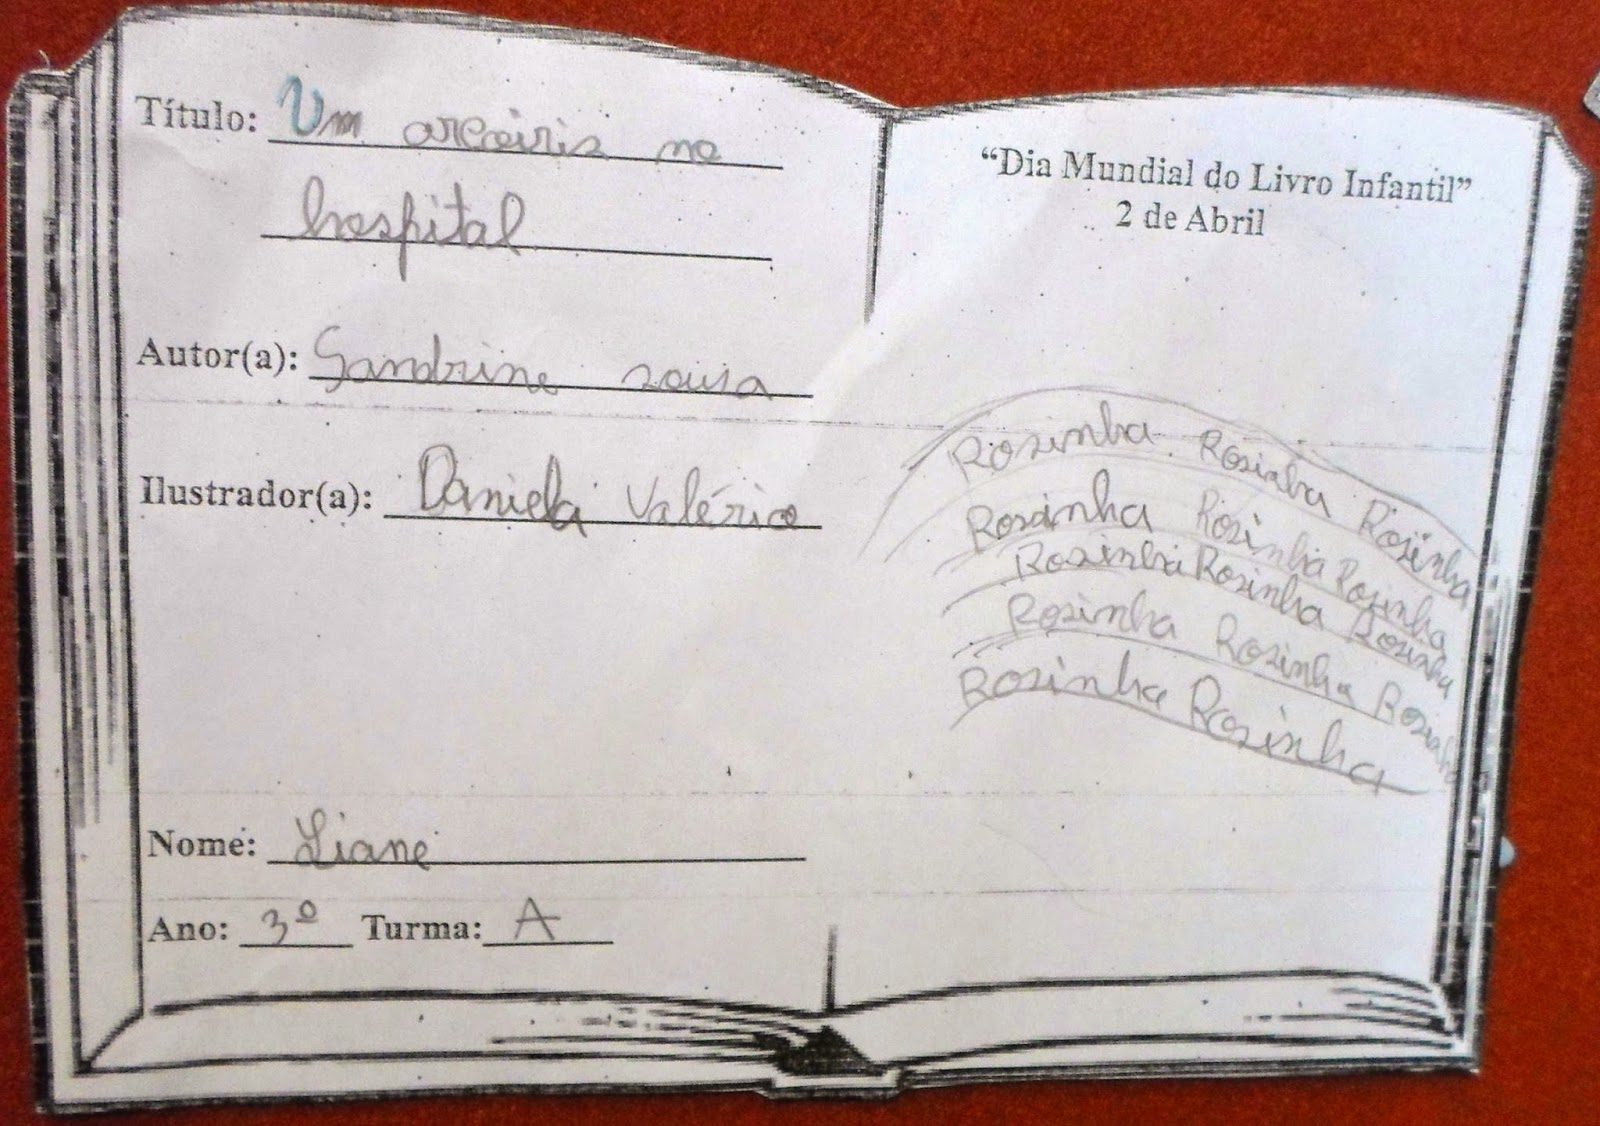 Título: Um arcoiris no
hospital
Autor(a): Sandrine sousa
Ilustrador(a): Daniela Valérico
Nome: Liane
Ano: 3º Turma: A
“Dia Mundial do Livro Infantil”
2 de Abril
Rosinha Rosinha Rosinha
Rosinha Rosinha Rosinha
Rosinha Rosinha Rosinha
Rosinha Rosinha Rosinha
Rosinha Rosinha